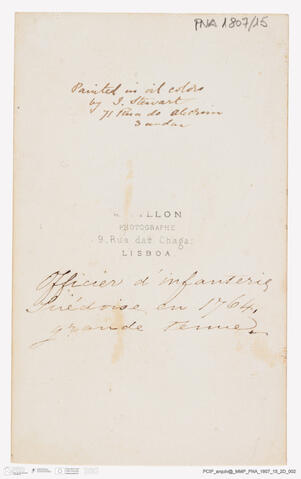 PNA 1807/15
Painted in oil colors
by J. Stewart
71 Rua do Alecrim
3 andar
LLON
PHOTOGRAPHE
9, Rua das Chagas
LISBOA
Officier d'infanterie
Suédoise en 1764,
grande tenue.
PCIP_arquiv@_MMP_PNA_1807_15_2D_002